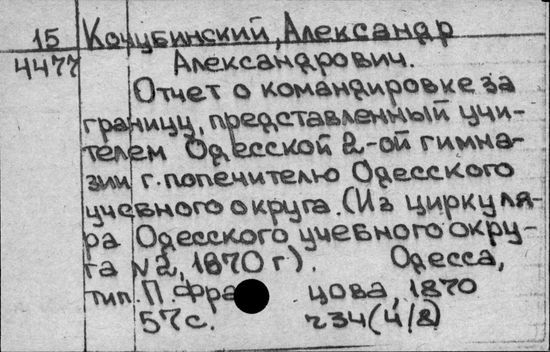 15 Кочубинский, Александр
4477 Александрович.
Отчет о командировке за
границу, представленный учи-
телем Одесской 2-ой гимна-
зии г. попечителю Одесского
учебного округа. (Из циркуля-
ра Одесского учебного окру-
га №2, 1870 г). Одесса,
тип. П. Фра цова, 1870
57с. 234(4/8)